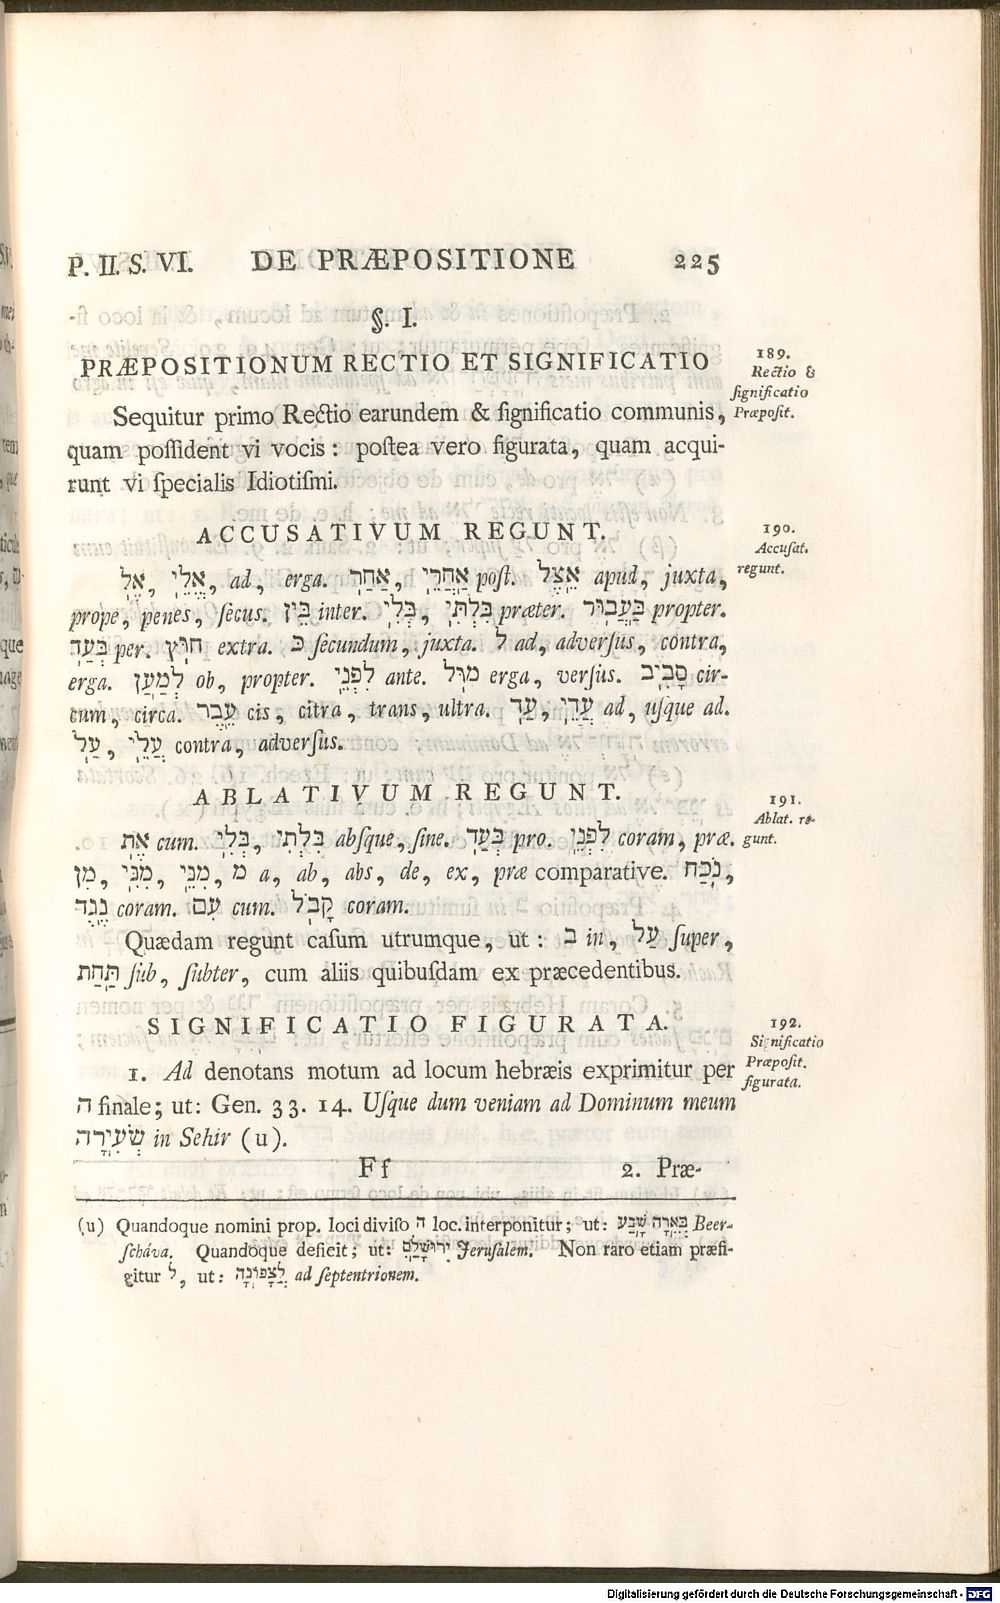 P. II. S. VI. DE PRÆPOSITIONE 225
§. I.
PRÆPOSITIONUM RECTIO ET SIGNIFICATIO
189.
Rectio &
ſignificatio
Præpoſit.
Sequitur primo Rectio earundem & ſignificatio communis,
quam poſſident vi vocis: poſtea vero figurata, quam acqui-
runt vi ſpecialis Idiotiſmi.
ACCUSATIVUM REGUNT.
190.
Accuſat.
regunt.
אֶל, אֱלֵי, ad, erga. אַחַר, אַחֲרֵי poſt. אֵצֶל apud, juxta,
prope, penes, ſecus. בֵּין inter. בְּלִי, בִּלְתִּי præter. בַּעֲבוּר propter.
בְּעַד per. חוּץ extra. כּ ſecundum, juxta. ל ad, adverſus, contra,
erga. לְמַעַן ob, propter. לִפְנֵי ante. מוּל erga, verſus. סָבִיב cir-
cum, circa. עֵבֶר cis, citra, trans, ultra. עַד, עֲדֵי ad, uſque ad.
עַל, עֲלֵי contra, adverſus.
ABLATIVUM REGUNT.
191.
Ablat. re-
gunt.
אֵת cum. בְּלִי, בִּלְתִּי abſque, ſine. בְּעַד pro. לִפְנֵי coram, præ.
מִן, מִנִּי, מִנֵּי, מ a, ab, abs, de, ex, præ comparative. נֹכַח,
נֶגֶד coram. עִם cum. קָבֹל coram.
Quædam regunt caſum utrumque, ut: ב in, עַל ſuper,
תַּחַת ſub, ſubter, cum aliis quibuſdam ex præcedentibus.
SIGNIFICATIO FIGURATA.
192.
Significatio
Præpoſit.
figurata.
1. Ad denotans motum ad locum hebræis exprimitur per
ה finale; ut: Gen. 33. 14. Uſque dum veniam ad Dominum meum
שֵׂעִירָה in Sehir (u).
Ff 2. Præ-
(u) Quandoque nomini prop. loci diviſo ה loc. interponitur; ut: בְּאֵרָה שָׁבַע Beer-
ſcháva. Quandoque deficit; ut: יְרוּשָׁלַםִ Jeruſalem. Non raro etiam præfi-
gitur ל, ut: לַצָּפוֹנָה ad ſeptentrionem.
Digitalisierung gefördert durch die Deutsche Forschungsgemeinschaft - DFG